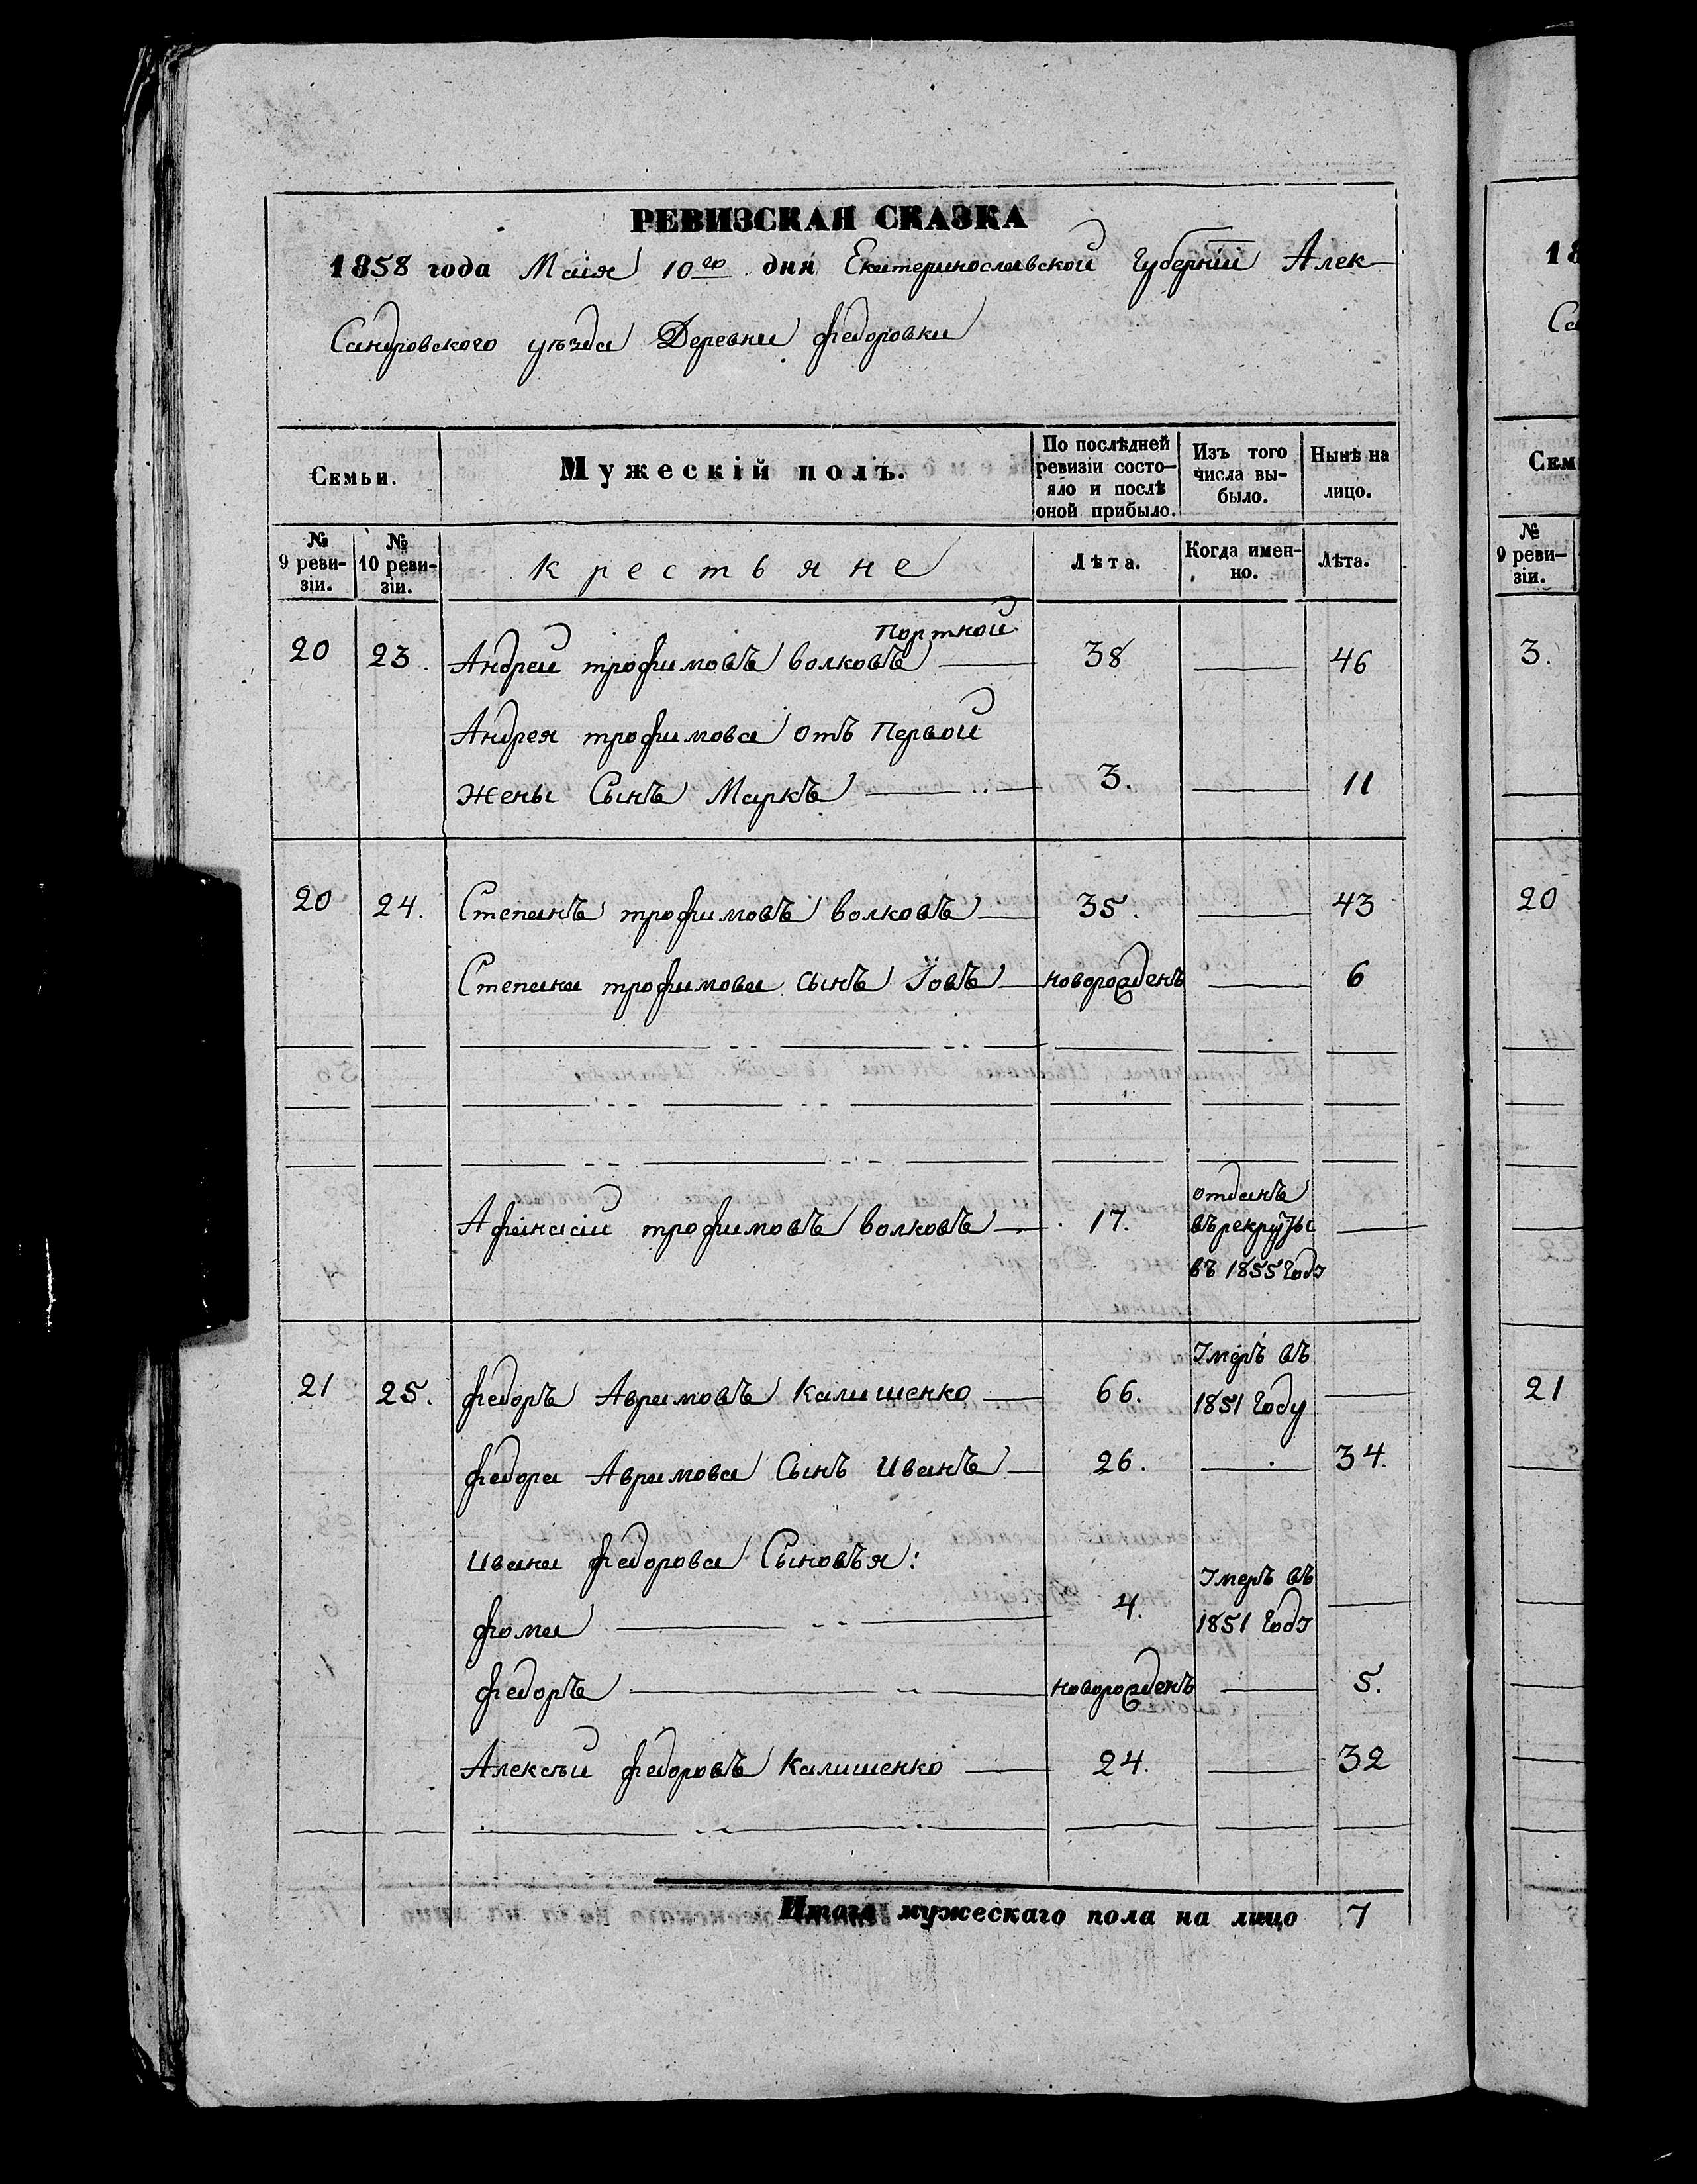 РЕВИЗСКАЯ СКАЗКА
1858 года Маія 10го дня Екатеринославской Губерніи Алек
Сандровского уѣзда Деревни федоровки
Семьи.
Мужескій полъ.
По послѣдней
ревизіи состо-
яло и послѣ
оной прибыло.
Изъ того
числа вы-
было.
Нынѣ на
лицо.
№
9 реви-
зіи.
№
10 реви-
зіи.
крестьяне
Лѣта.
Когда имен-
но.
Лѣта.
Портной
20 23. Андрей трофимовъ волковъ 38 46
Андрея трофимова отъ Первой
жены Сынъ Маркъ 3. 11
20 24. Степанъ трофимовъ волковъ 35. 43
Степана трофимова сынъ Іовъ новорожденъ 6
Афанасій трофимовъ волковъ 17. отданъ
въ рекруты
въ 1855 Годꙋ
21 25. федоръ Аврамовъ Калишенко 66. Ꙋмеръ въ
1851 Году
федора Аврамова Сынъ Иванъ 26. 34.
Ивана федорова Сыновъя:
фома 4. Ꙋмеръ въ
1851 Годꙋ
федоръ новорожденъ 5.
Алексѣй федоровъ Калишенко 24. 32
Итого мужескаго пола на лицо 7
18
Са
Сем
№
9 реви-
зіи.
3.
20
21